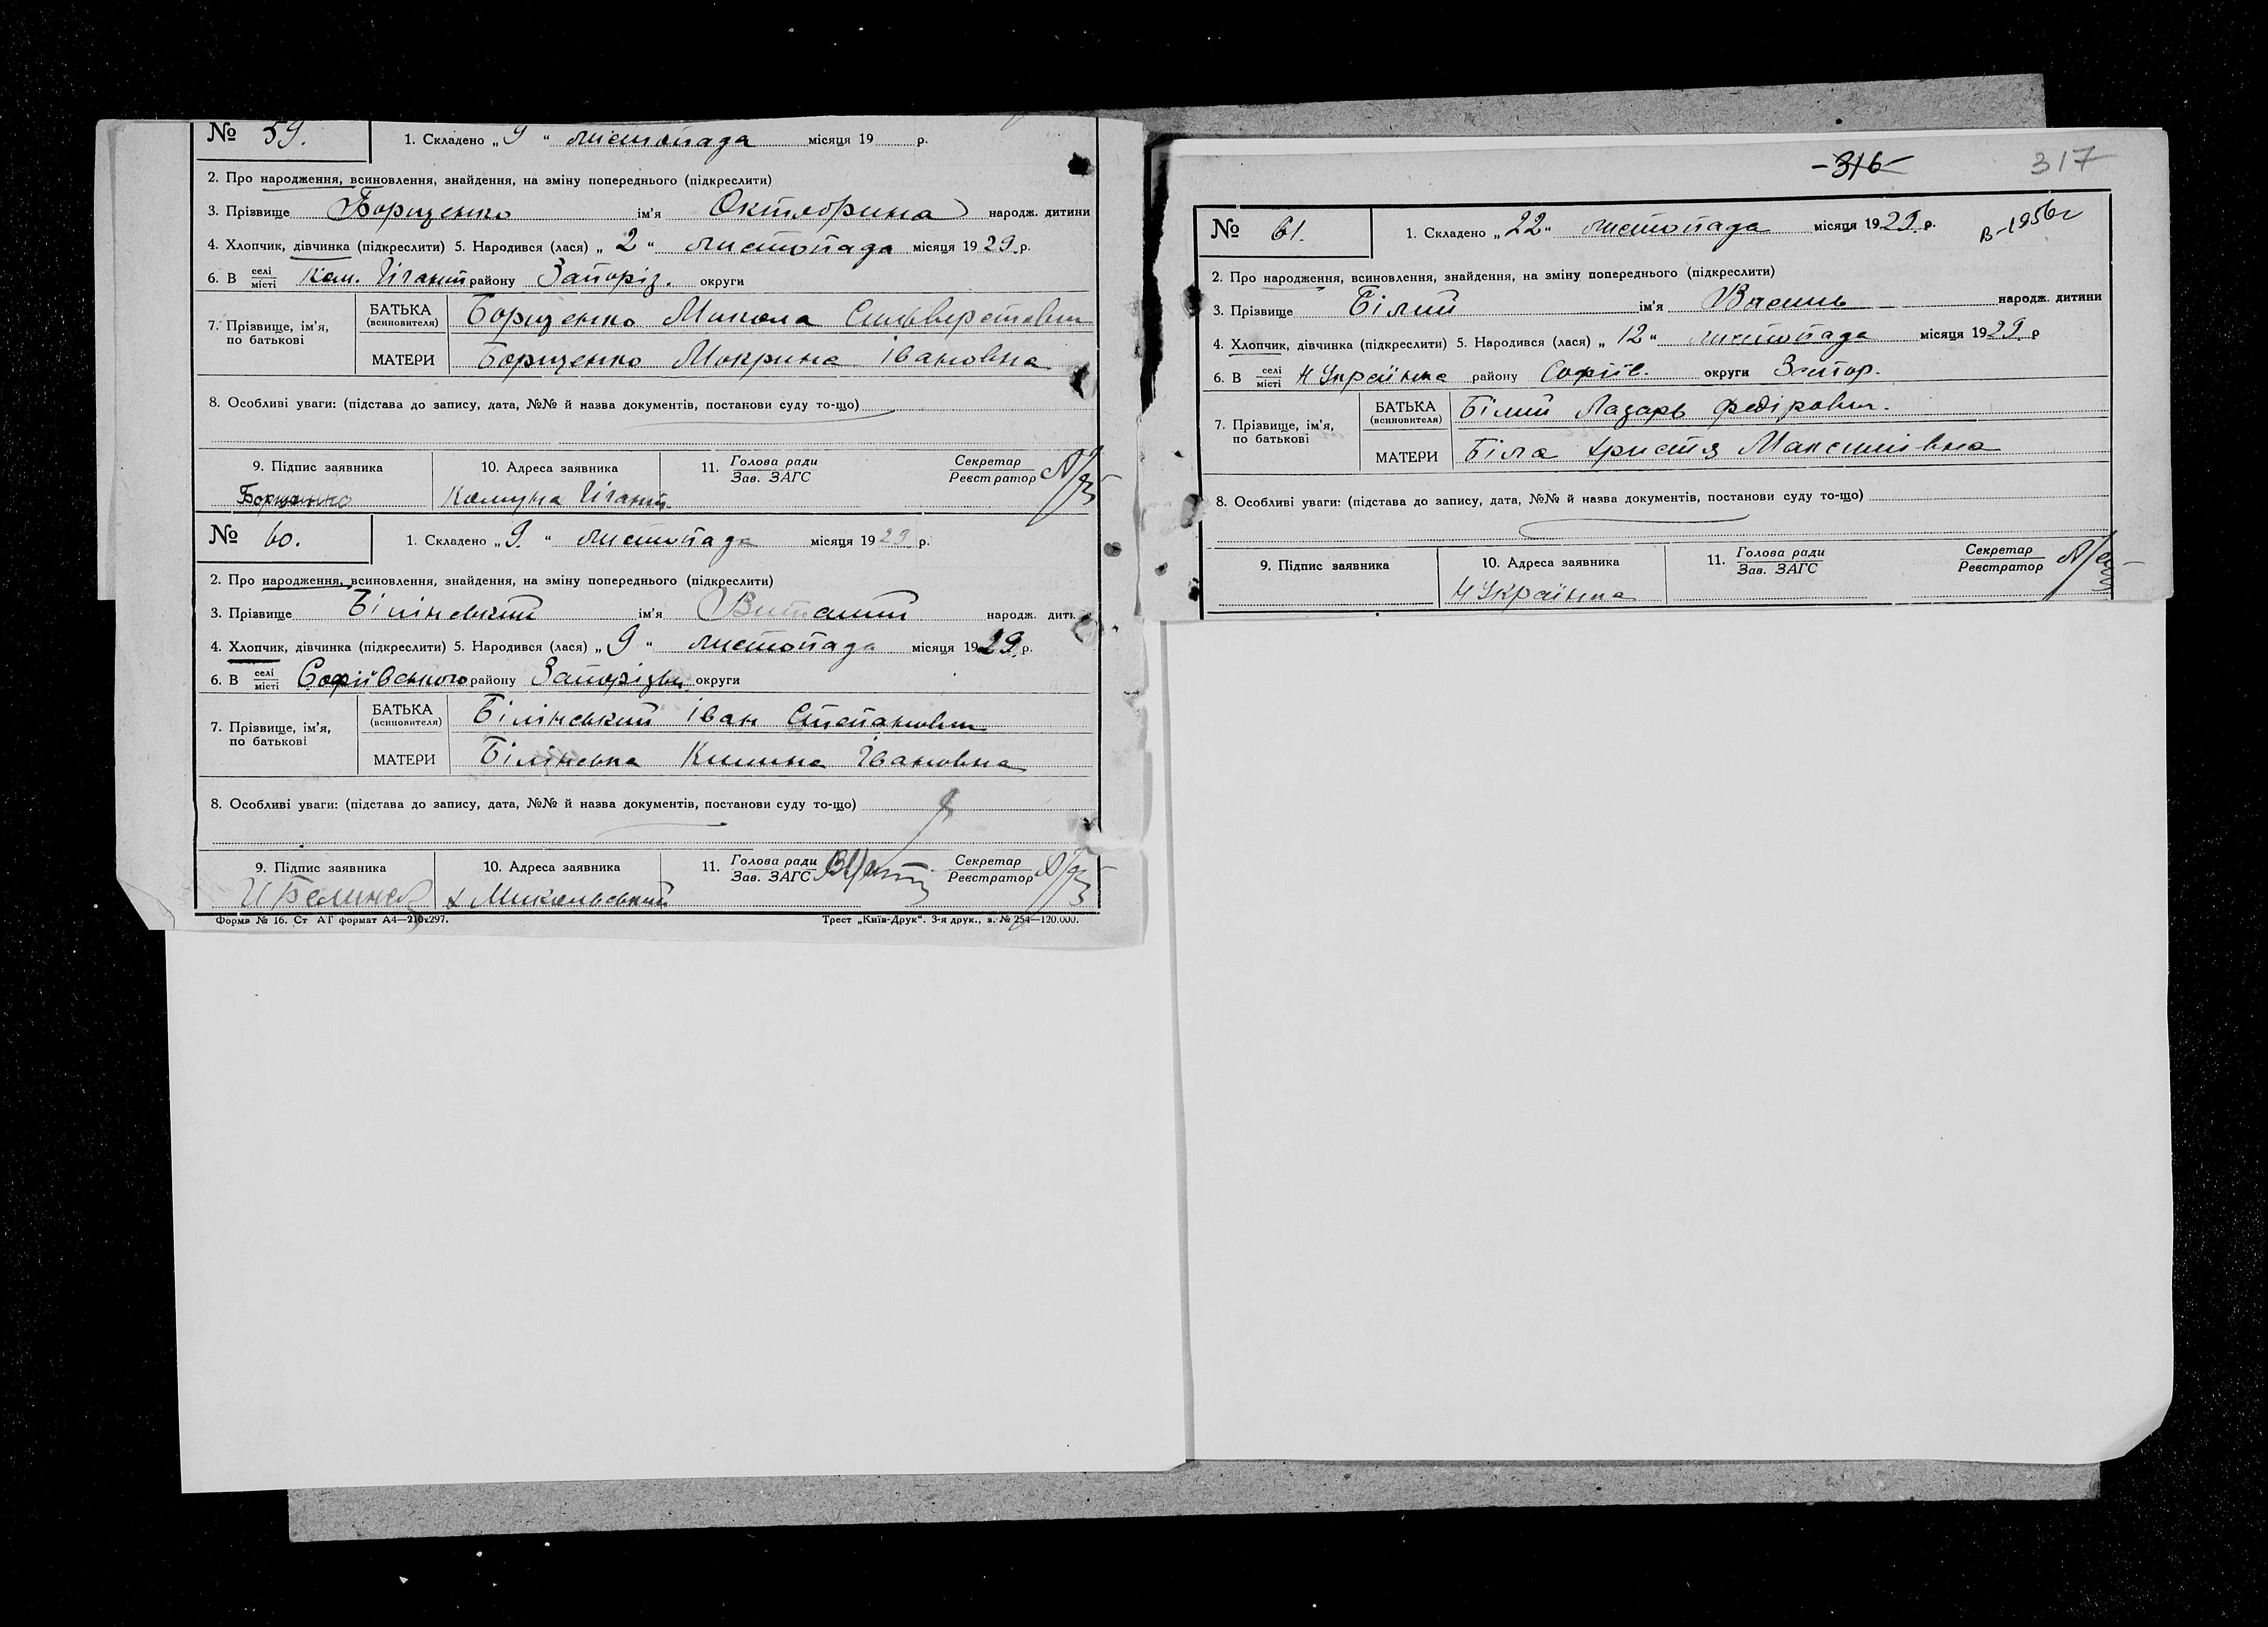 № 59. 1. Складено „9“ листопада місяця 19 р.
2. Про народження, всиновлення, знайдення, на зміну попереднього (підкреслити)
3. Прізвище Борщенко ім'я Октябрина народж. дитини
4. Хлопчик, дівчинка (підкреслити) 5. Народився (лася) „2“ листопада місяця 1929 р.
6. В селі місті Ком. Гігант району Запоріз. округи
7. Прізвище, ім'я, по батькові БАТЬКА (всиновителя) Борщенко Микола Сильверстович
МАТЕРИ Борщенко Мокрина Івановна
8. Особливі уваги: (підстава до запису, дата, №№ й назва документів, постанови суду то-що)
9. Підпис заявника 10. Адреса заявника 11. Голова ради Зав. ЗАГС Секретар Реєстратор
Борщенко Комуна Гігант.
№ 60. 1. Складено „9.“ листопада місяця 1929 р.
2. Про народження, всиновлення, знайдення, на зміну попереднього (підкреслити)
3. Прізвище Білінський ім'я Виталий народж. дит
4. Хлопчик, дівчинка (підкреслити) 5. Народився (лася) „9“ листопада місяця 1929 р.
6. В селі місті Софіївського району Запорізьк. округи
7. Прізвище, ім'я, по батькові БАТЬКА (всиновителя) Білінський Іван Степанович
МАТЕРИ Білінська Килина Івановна
8. Особливі уваги: (підстава до запису, дата, №№ й назва документів, постанови суду то-що)
9. Підпис заявника 10. Адреса заявника 11. Голова ради Зав. ЗАГС Секретар Реєстратор
х Микольський
Форма № 16. Ст АГ формат А4—210х297. Трест „Київ-Друк“. 3-я друк., з. № 254—120.000.
-316- 317
№ 61. 1. Складено „22“ листопада місяця 1929 р. В-1956г
2. Про народження, всиновлення, знайдення, на зміну попереднього (підкреслити)
3. Прізвище Білий ім'я Василь народж. дитини
4. Хлопчик, дівчинка (підкреслити) 5. Народився (лася) „12“ листопада місяця 1929 р
6. В селі місті Н Українка району Софіїв. округи Запор.
7. Прізвище, ім'я, по батькові БАТЬКА (всиновителя) Білий Лазарь Федірович.
МАТЕРИ Біла Христя Максимівна
8. Особливі уваги: (підстава до запису, дата, №№ й назва документів, постанови суду то-що)
9. Підпис заявника 10. Адреса заявника 11. Голова ради Зав. ЗАГС Секретар Реєстратор
Н Українка